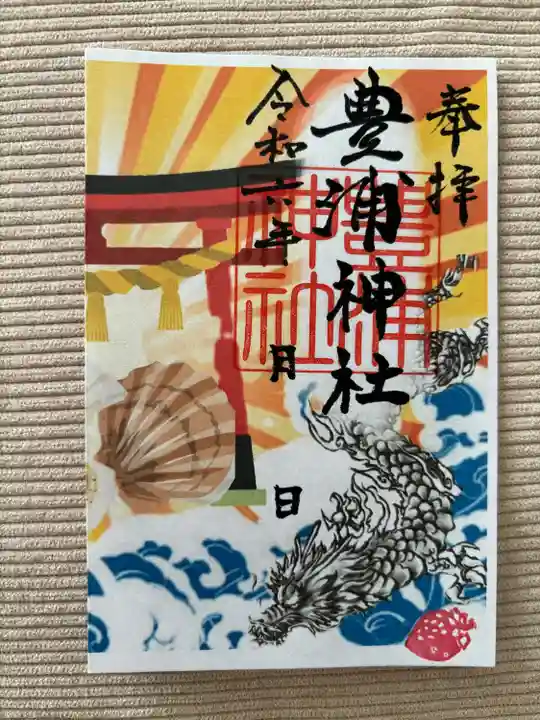 奉拝
豊浦神社
令和六年 月 日
豊浦
神社